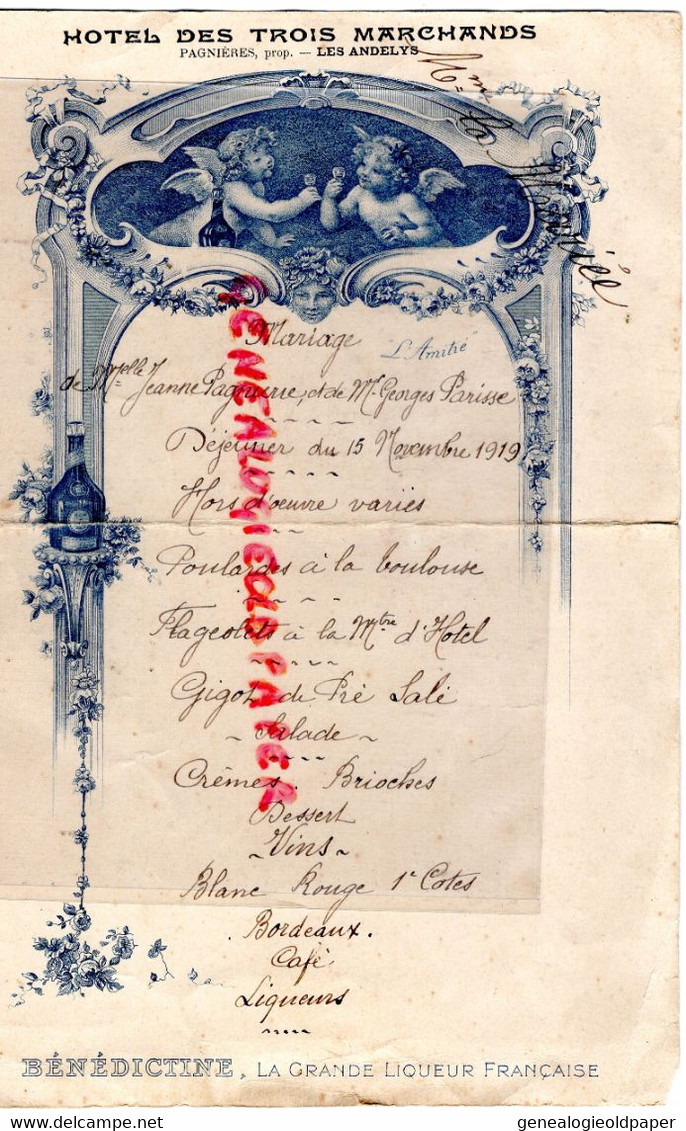 HOTEL DES TROIS MARCHANDS
PAGNIÈRES, prop. — LES ANDELYS
Mme La Mariée
Mariage
L'Amitié
de Melle Jeanne et de Mr Georges Parisse
Déjeuner du 15 Novembre 1919
Hors d'oeuvre variés
Poulardes à la boulouse
Flageolets à la Mtre d'Hotel
Gigot de Pré Salé
Salade
Crèmes. Brioches
Dessert
Vins
Blanc Rouge 1e Cotes
Bordeaux.
Café
Liqueurs
BÉNÉDICTINE, LA GRANDE LIQUEUR FRANÇAISE
GENEALOGIEOLDPAPER
genealogieoldpaper